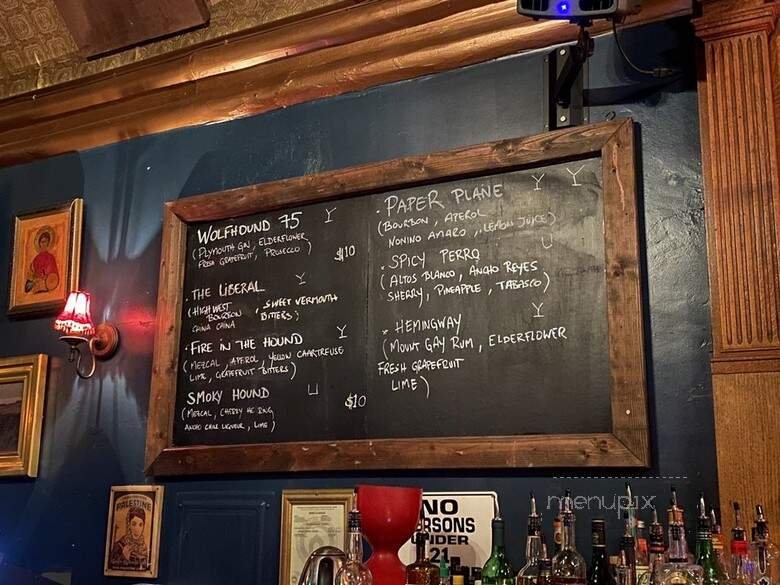 WOLFHOUND 75
(PLYMOUTH GIN, ELDERFLOWER
FRESH GRAPEFRUIT, PROSECCO)
$10
· THE LIBERAL
(HIGH WEST BOURBON, SWEET VERMOUTH
CHINA CHINA BITTERS)
· FIRE IN THE HOUND
(MEZCAL, APEROL, YELLOW CHARTREUSE
LIME, GRAPEFRUIT BITTERS)
SMOKY HOUND
$10
(MEZCAL, CHERRY HEERING,
ANCHO CHILE LIQUEUR, LIME)
· PAPER PLANE
(BOURBON, APEROL
NONINO AMARO, LEMON JUICE)
· SPICY PERRO
(ALTOS BLANCO, ANCHO REYES
SHERRY, PINEAPPLE, TABASCO)
HEMINGWAY
(MOUNT GAY RUM, ELDERFLOWER
FRESH GRAPEFRUIT
LIME)
menupix
PALESTINE
NO
PERSONS
UNDER
21